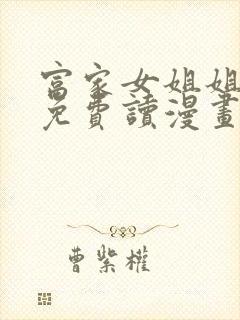 富家女姐姐
免費讀漫畫
曹紫權